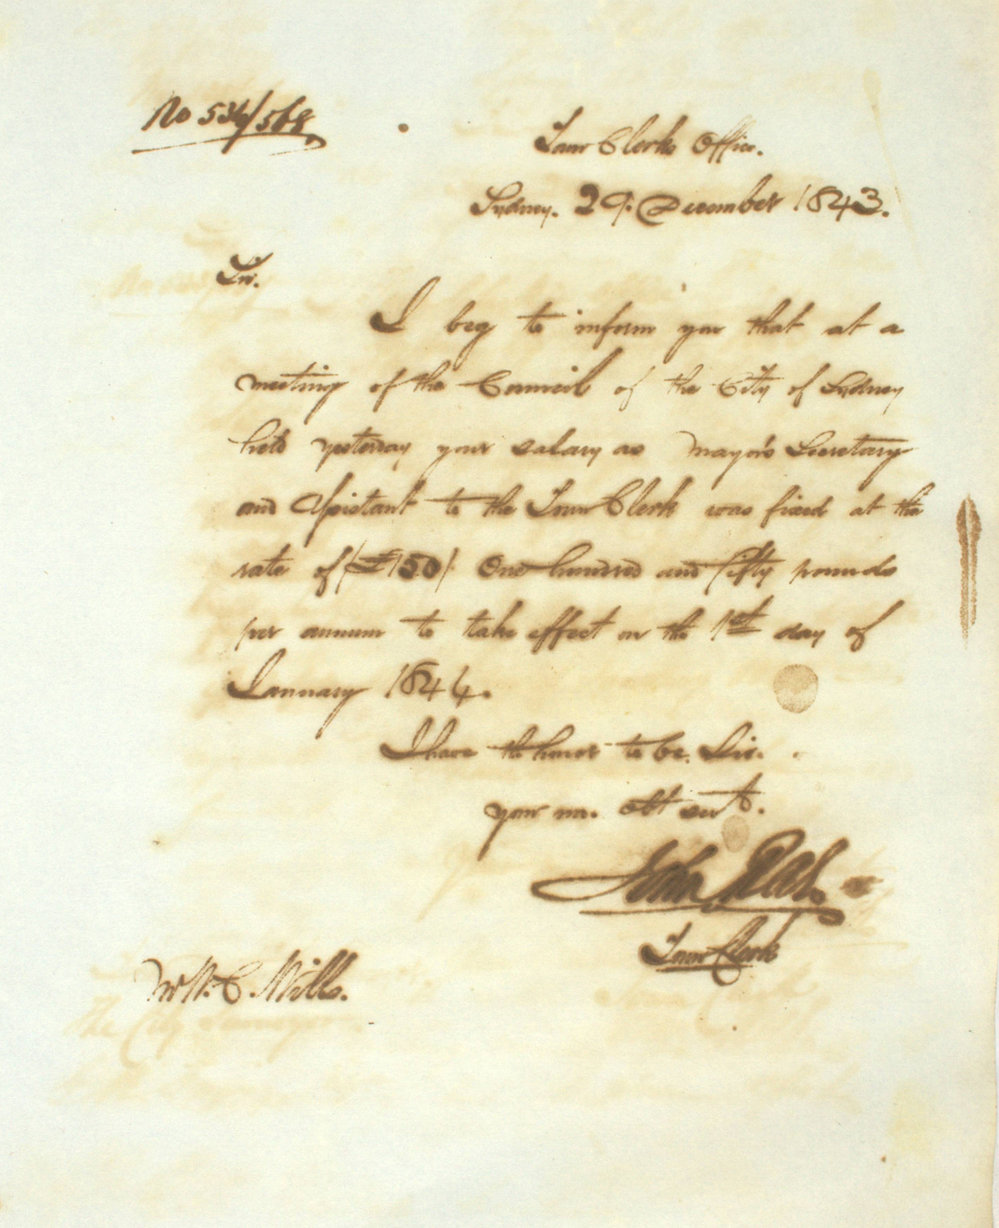 No 534/568
Town Clerks Office.
Sydney. 29. December 1843.
Sir.
I beg to inform you that at a
meeting of the Council of the City of Sydney
held yesterday your salary as Mayor's Secretary
and Assistant to the Town Clerk was fixed at the
rate of (£150) One hundred and fifty pounds
per annum to take effect on the 1st day of
January 1844.
I have the honor to be. Sir.
your mo. obt servt.
John Rae
Town Clerk
Mr W. C. Mills.